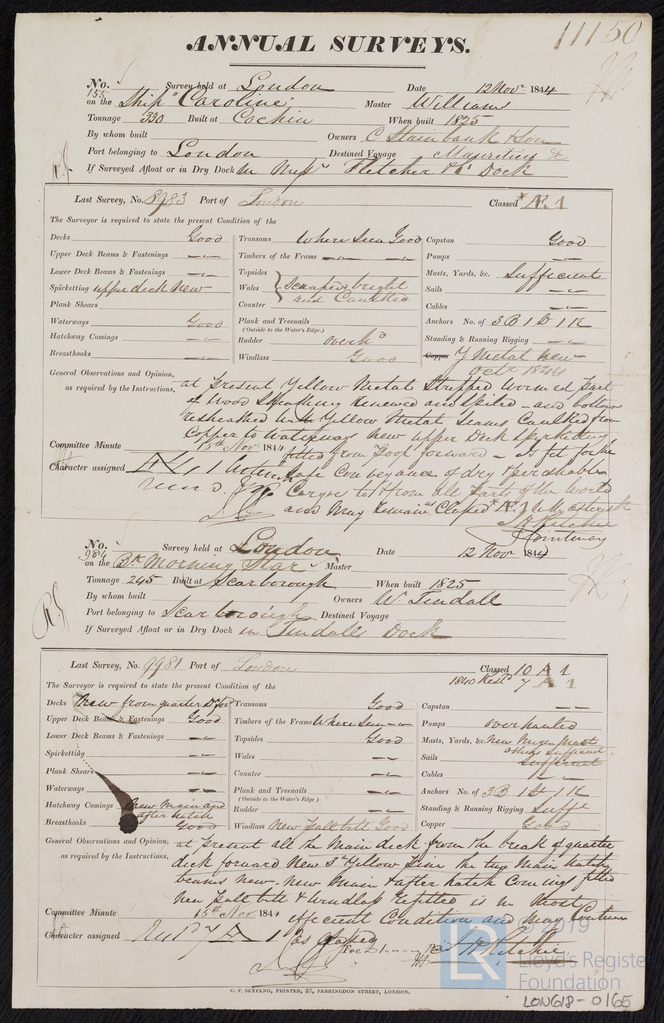 11150
ANNUAL SURVEYS.
No. 155 Survey held at London Date 12 Novr 1844
on the Ship "Caroline" Master Williams
Tonnage 330 Built at Cochin When built 1825
By whom built Owners C Stainbank & Son
Port belonging to London Destined Voyage Mauritius &c
If Surveyed Afloat or in Dry Dock in Messrs Fletcher & Co Dock
Last Survey, No. 8983 Port of London Classed Æ 1
The Surveyor is required to state the present Condition of the
Decks Good
Upper Deck Beams & Fastenings
Lower Deck Beams & Fastenings
Spirketting upper deck New
Plank Shears
Waterways Good
Hatchway Comings
Breasthooks
Transoms Where Seen Good
Timbers of the Frame
Topsides
Wales scraped bright
Counter and Caulked
Plank and Treenails
(Outside to the Water's Edge.)
Rudder overhd
Windlass Good
Capstan Good
Pumps
Masts, Yards, &c. Sufficient
Sails
Cables
Anchors No. of 3B 1S 1K
Standing & Running Rigging
Copper Y Metal New
Octr 1844
General Observations and Opinion,
as required by the Instructions,
at present Yellow Metal Stripped Wormed part
of Wood Sheathing Renewed and Spiled - and bottom
resheathed with Yellow Metal Seams Caulked from
Copper to Waterways New upper Deck Spirketting
fitted from Poop forward - Is fit for the
safe Conveyance of dry & perishable
Cargoe to & from all parts of the World
and may remain Classed Æ 1 with asterisk
Committee Minute 15th Nov. 1844
Character assigned Æ 1
No. 984 Survey held at London Date 12 Novr 1844
on the Bk "Morning Star" Master
Tonnage 245 Built at Scarborough When built 1825
By whom built Owners W. Tindall
Port belonging to Scarborough Destined Voyage
If Surveyed Afloat or in Dry Dock in Tindalls Dock
Last Survey, No. 9981 Port of London Classed 10 A 1
1840 Restd 7 A 1
The Surveyor is required to state the present condition of the
Decks New from quarter Dk ford
Upper Deck Beams & Fastenings Good
Lower Deck Beams & Fastenings
Spirketting
Plank Shears
Waterways
Hatchway Comings New Main and
after hatch
Breasthooks Good
Transoms Good
Timbers of the Frame Where Seen
Topsides Good
Wales
Counter
Plank and Treenails
(Outside to the Water's Edge.)
Rudder
Windlass New pall bitt Good
Capstan
Pumps overhauled
Masts, Yards, &c. New Mizen Mast
others Sufficient
Sails Sufficient
Cables
Anchors No. of 3B 1S 1K
Standing & Running Rigging Sufft
Copper Good
General Observations and Opinion,
as required by the Instructions,
at present all the Main deck from the break of quarter
deck forward New 3in Yellow Pine the two Main hatch
beams new New Main & after hatch Comings fitted
New Pall bitt & Windlass refitted is in most
efficient Condition and may Continue
as Classed
Committee Minute 15th Nov. 1844
Character assigned A 1
Fee
C. F. SEYFANG, PRINTER, 57, FARRINGDON STREET, LONDON.
© 2019
LR
Lloyd's Register
Foundation
LON618-0165